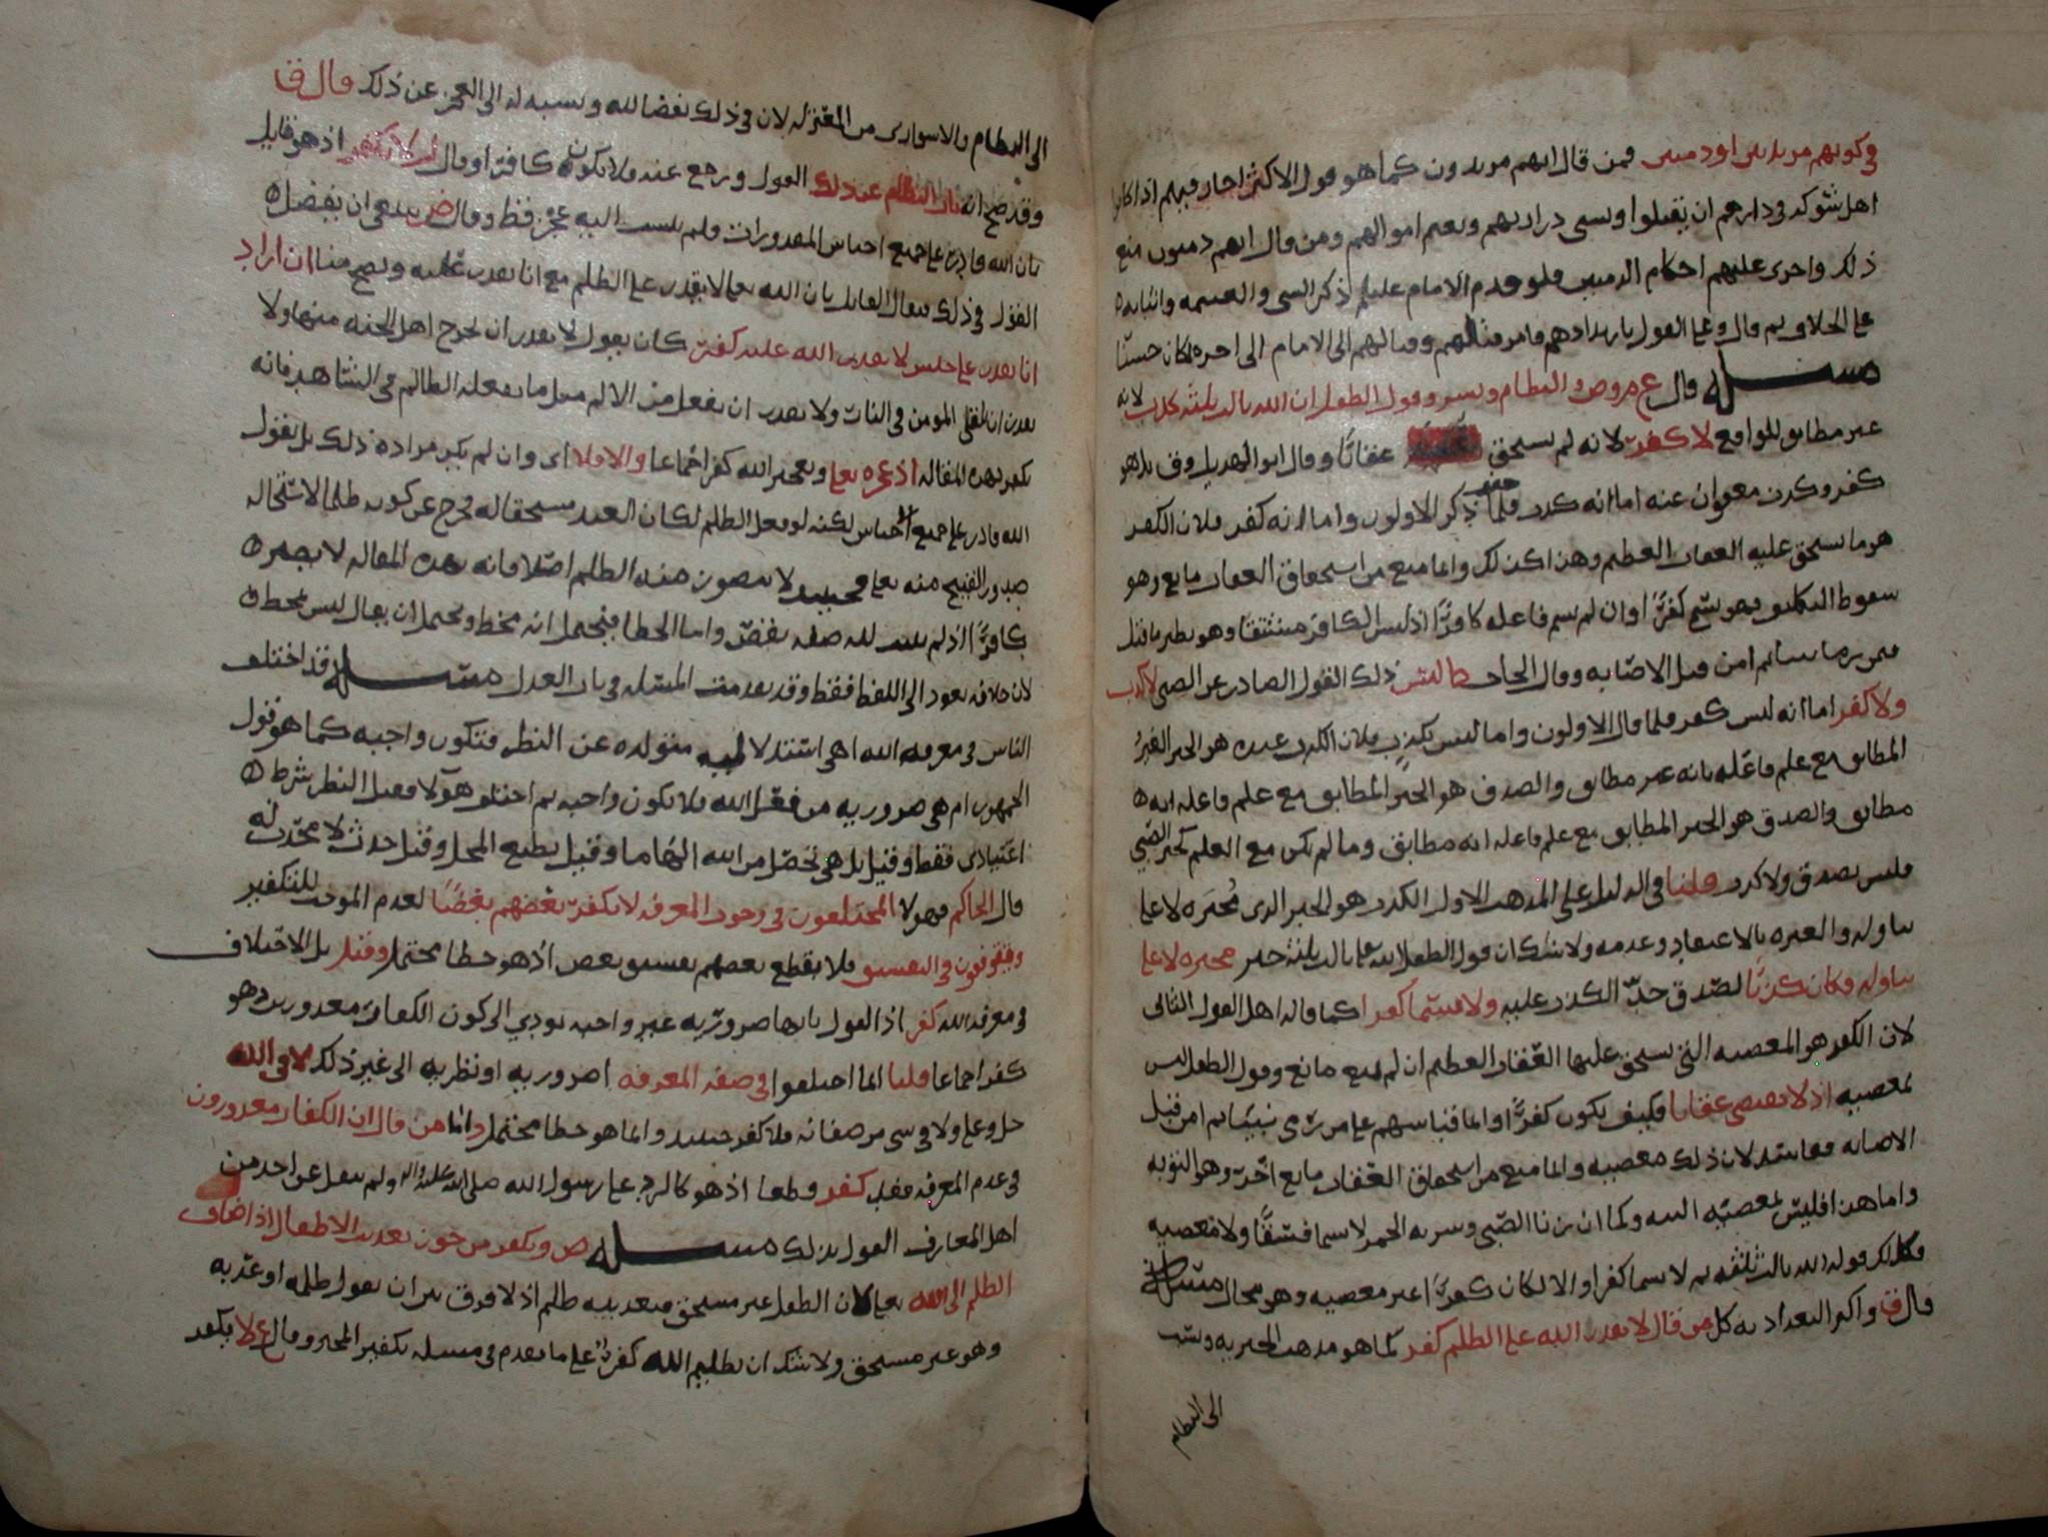 في كونهم مرتدين او ذميين فمن قال انهم مرتدون كما هو قول الاكثر اجاز فيهم اذا كان لهم
اهل شوكه في دارهم ان يقتلوا وتسبى ذراريهم وتغنم اموالهم ومن قال انهم ذميون منع
ذلك واجرى عليهم احكام الذميين فلو قدم الامام عليلم ذكر السبي والغنيمه واثباته
على الخلاف ثم قال وعلى القول بارتدادهم وامر قتالهم وقتالهم الى الامام الى اخره لكان حسنا
مسئله قال ع م وص والنظام وبشر وقول الطفل ان الله ثالث ثلثه كذب لانه
غير مطابق للواقع لا كفر لانه لم يستحق عليه عقابا وقال ابو الهذيل وق بل هو
كفر وكذب معفوان عنه اما انه كذب فلما ذكر الاولون واما انه كفر فلان الكفر
هو ما يستحق عليه العقاب العظيم وهذا كذلك وانما منع من استحقاق العقاب مانع وهو
سقوط التكليف فهو يسمى كفرا وان لم يسم فاعله كافرا اذ ليس الكافر مشتقا وهو نظير ما قيل
فمن رمى نبيا ثم امن قبل الاصابه وقال الجاحظ ليس ذلك القول الصادر عن الصبي لا كذب
ولا كفر اما انه ليس كفر فلما قال الاولون واما ليس بكذب فلان الكذب عنده هو الخبر الغير
المطابق مع علم فاعله بانه غير مطابق والصدق هو الخبر المطابق مع علم فاعله انه
مطابق والصدق هو الخبر المطابق مع علم فاعله انه مطابق وما لم يكن مع العلم كخبر الصبي
فليس بصدق ولا كذب قلنا في الدليل على المذهب الاول الكذب هو الخبر الذي مخبره لا على
تناوله ولا عبره بالاعتقاد وعدمه ولا شك ان قول الطفل الله تعالى ثالث ثلثه خبر مخبره لا على
تناوله وكان كذبا لصدق حد الكذب عليه ولا يسما كفرا كما قاله اهل القول الثاني
لان الكفر هو المعصيه التي يستحق عليها العقاب العظيم ان لم يمنع مانع وقول الطفل ليس
بمعصيه اذ لا يقتضي عقابا فكيف يكون كفرا واما قياسهم على من رمى نبيا ثم امن قبل
الاصابه ففاسد لان ذلك معصيه وانما منع من استحقاق العقاب مانع اخر وهو التوبه
واما هذا فليس بمعصيه البته وكما ان زنا الصبي وشربه الخمر لا يسما فسقا ولا معصيه
فكذلك قوله الله ثالث ثلثه لا يسما كفرا والا لكان كفرا غير معصيه وهو محال مسئله
قال ق واكثر البغداديه كل من قال لا يقدر الله على الظلم كفر كما هو مذهب الجبريه ونسب
الى النظام
الى النظام والاسواري من المعتزله لان في ذلك نقضا لله ونسبه له الى العجز عن ذلك قال ق
وقد صح انه تاب النظام عن ذلك القول ورجع عنه فلا يكون كافرا وقال لا يكفر اذ هو قايل
بان الله قادر على جميع اجناس المقدورات ولم ينسب اليه عجز قط وقال ض ينبغي ان يفصل
القول في ذلك فيقال القايل بان الله تعالى لا يقدر على الظلم مع انا نقدر عليه ويصح منا ان اراد
انا نقدر على جنس لا يقدر الله عليه كفر كان يقول لا يقدر ان يخرج اهل الجنه منها ولا
يقدر ان يلقي المومن في النار ولا يقدر ان يفعل من الالم مثل ما يفعله الظالم في الشاهد فانه
يكفر بهذه المقاله اذ عجزه تعالى وتعجيز الله كفر اجماعا والا فلا اي وان لم يكن مراده ذلك بل يقول
الله قادر على جميع الاجناس لكنه لو فعل الظلم لكان العبد مستحقا له فخرج عن كونه ظلما لاستحاله
صدور القبيح منه تعالى فحينئذ لا يتصور منه الظلم اصلا فانه بهذه المقاله لا يصير
كافرا اذ لم يثبت لله صفه نقص واما الخطا فيحتمل انه مخط ويحتمل ان يقال ليس بمخط
لان خلافه يعود الى اللفظ فقط وقد تقدمت المسئله في باب العدل مسئله قد اختلف
الناس في معرفه الله اهي استدلاليه متولده عن النظر فتكون واجبه كما هو قول
الجمهور ام هي ضروريه من فعل الله فلا تكون واجبه ثم اختلف هؤلا فقيل النظر شرط
اعتيادي فقط وقيل بل هي تحصل من الله الهاما وقيل بطبع المحل وقيل حدث لا محدث له
قال الحاكم فهولا المختلفون في وجوب المعرفه لا يكفر بعضهم بعضا لعدم الموجب للتكفير
ويتوقفون في التفسيق فلا يقطع بعضهم بفسق بعض اذ هو خطا محتمل وقيل بل الاختلاف
في معرفه الله كفر اذ القول بانها ضروريه غير واجبه يودي الى كون الكفار معذورين وهو
كفر اجماعا قلنا انما اختلفوا في صفه المعرفه اضروريه او نظريه الى غير ذلك لا في الله
جل وعلا ولا في شي من صفاته فلا كفر حينئذ وانما هو خطا محتمل واما من قال ان الكفار معذورون
في عدم المعرفه فقد كفر قطعا اذ هو كالرد على رسول الله صلى الله عليه واله ولم ينقل عن احد من
اهل المعارف القول بذلك مسئله ص ويكفر من جوز تعذيب الاطفال اذ اضاف
الظلم الى الله تعالى لان الطفل غير مستحق فتعذيبه ظلم اذ لا فرق بين ان يقول ظلمه او عذبه
وهو غير مستحق ولا شك ان تظليم الله كفر على ما تقدم في مسئله تكفير المجبره وقال ع لا يكفر